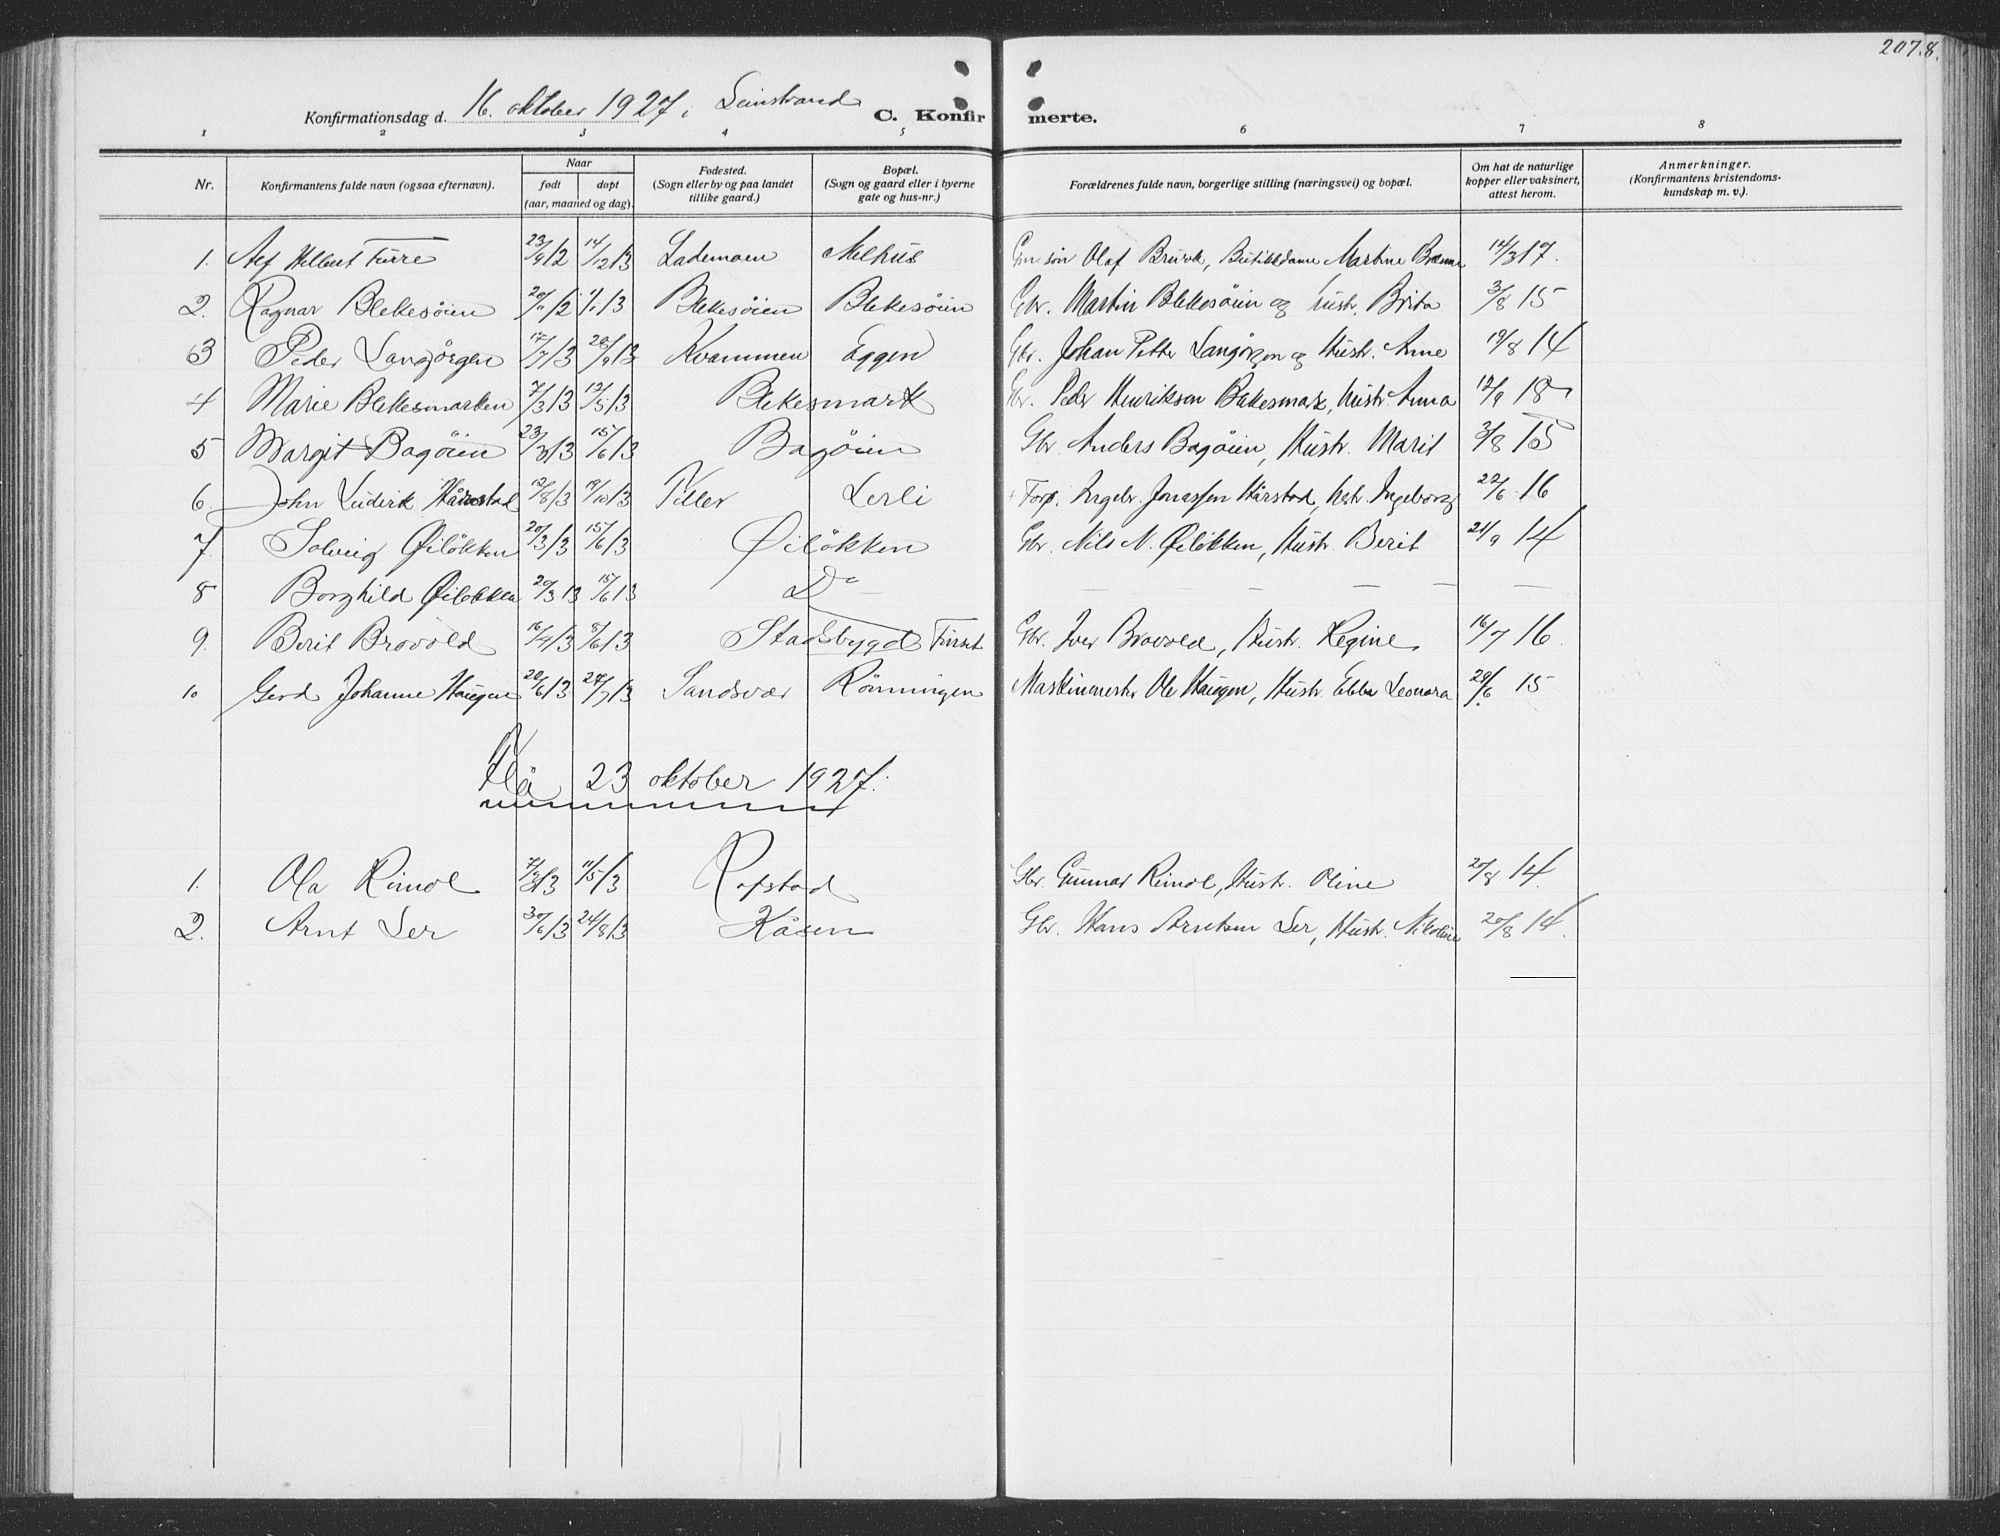 207.8.
Konfirmationsdag d. 16. oktober 1927 i Leinstrand C. Konfirmerte.
1 2 3 4 5 6 7 8
Nr. Konfirmantens fulde navn (ogsaa efternavn). Naar født døpt (aar, maaned og dag). Fødested. (Sogn eller by og paa landet tillike gaard.) Bopæl. (Sogn og gaard eller i byerne gate og hus-nr.) Forældrenes fulde navn, borgerlige stilling (næringsvei) og bopæl. Om hat de naturlige kopper eller vaksinert, attest herom. Anmerkninger. (Konfirmantens kristendomskundskap m. v.).
1. Alf Hilbert Furre 23/9 12 14/12 13 Lademoen Melhus søn Olaf Bruvik, Butikkdame Martine 14/3 17.
2. Ragnar Blekesöien 20/11 12 1/1 13 Blekesöien Blekesöien Gbr. Martin Blekesöien og hustr. Brita 3/8 15
3 Peder Langörgen 17/7 13 28/9 13 Kvammen Eggen Gbr. Johan Petter Langörgen og Hustr. Anne 19/8 14
4 Marie Blekesmarken 7/3 13 12/5 13 Blekesmark Gbr. Peder Henriksen Blekesmark, Hustr. Anna 12/9 18
5 Margit Bagöien 23/3 13 15/6 13 Bagöien Gbr. Anders Bagöien, Hustr. Marit 3/8 15
6. John Ludvik Hårstad 12/8 13 19/10 13 Tiller Lerli + Forp. Ingebr. Jonassen Hårstad, hustr. Ingeborg 22/6 16
7. Solveig Øilökken 20/3 13 15/6 13 Øilökken Gbr. Nils N. Øilökken, Hustr. Berit 21/9 14
8 Borghild Øilökken 20/3 13 15/6 13 Do — — — —
9. Berit Brovold 16/4 13 8/6 13 Stadsbygd Furset Gbr. Iver Brovold, Hustr. Regine 16/7 16.
10 Gerd Johanne Haugen 20/6 13 27/7 13 Sandsvær Rönningen Maskinmester Ole Haugen, Hustr. Ebba Leonora 20/6 15
Flå 23 oktober 1927.
1. Ola Rimol 7/3 13 11/5 13 Rofstad Gbr. Gunnar Rimol, Hustr. Oline 20/8 14.
2. Arnt Ler 30/6 13 24/8 13 Kåsen Gbr. Hans Arntsen Ler, Hustr. Nikoline 20/8 14.